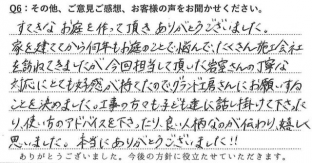 Q6：その他、ご意見ご感想、お客様の声をお聞かせください。
すてきなお庭を作って頂きありがとうございました。
家を建ててから何年もお庭のことで悩んで、たくさん施工会社
を訪ねてきましたが、今回担当して頂いた岩室さんの丁寧な
対応にとても好感が持てたのでグランド工房さんにお願いする
ことを決めました。工事の方々も子ども達に話し掛けて下さった
り、使い方のアドバイスを下さったり、良い人柄なのが伝わり、嬉しく
思いました。本当にありがとうございました!!
ありがとうございました。今後の方針に役立たせていただきます。